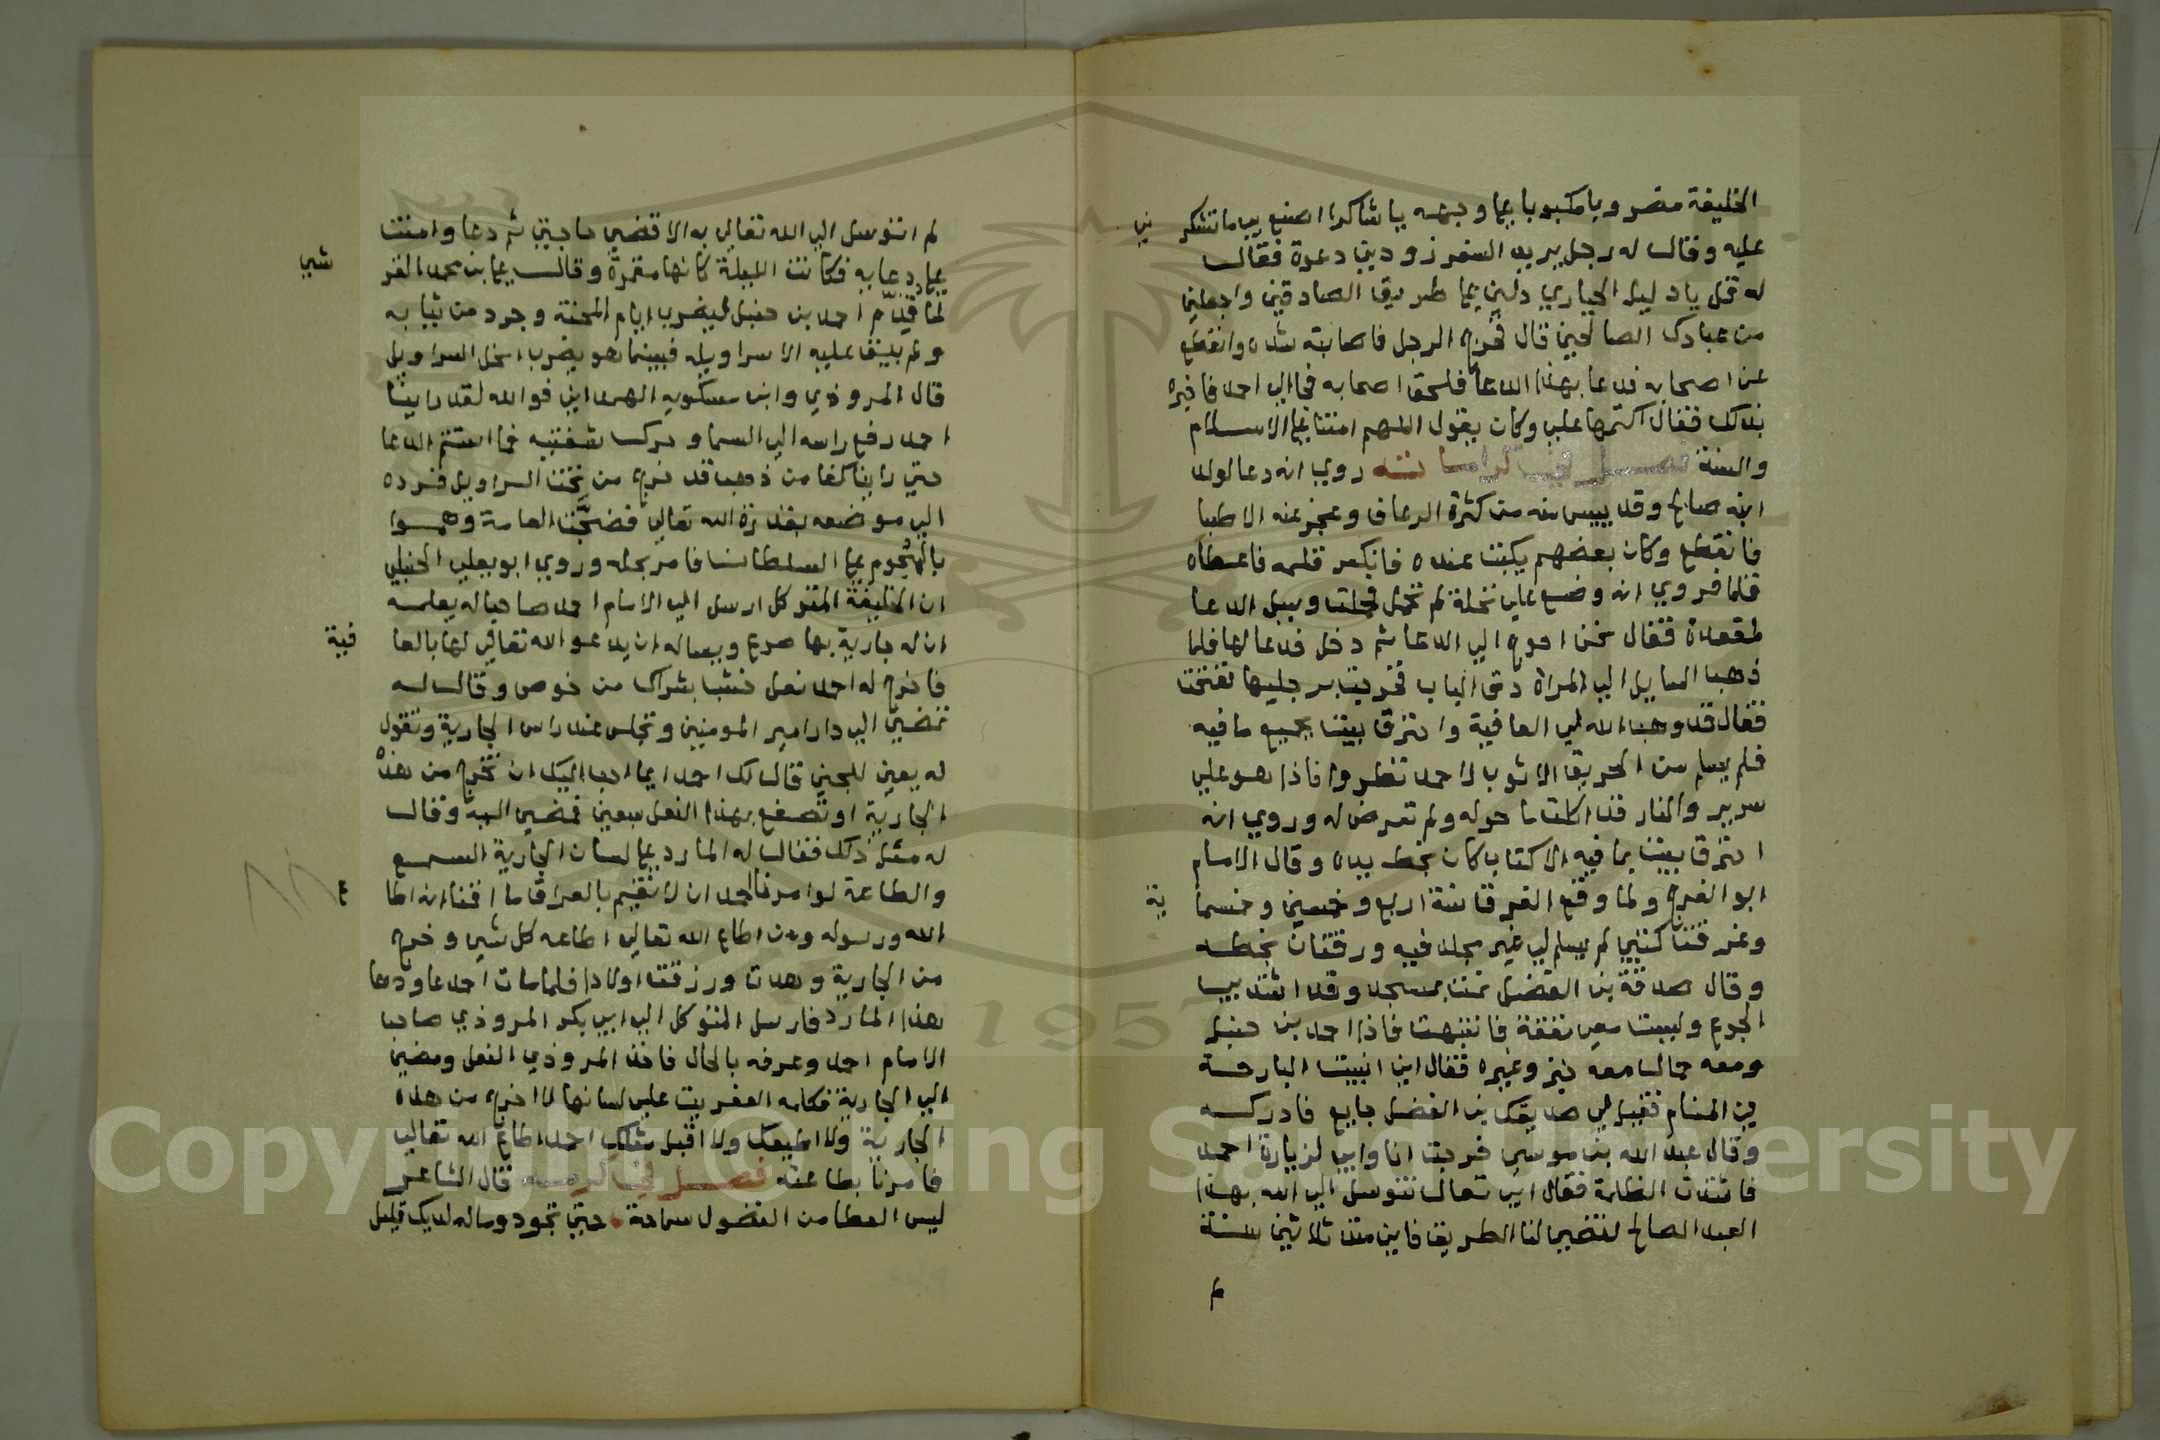 الخليفة مضروبا مكبوبا علي وجهه ياشاكرا اصنع بي ما تشكرني
عليه وقال له رجل يريد السفر زودني دعوة فقال
له قل يا دليل الحياري دلني علي طريق الصادقين واجعلني
من عبادك الصالحين قال فخرج الرجل فاصابته شده وانقطع
عن اصحابه فدعا بهذا الدعا فلحق اصحابه فجا الي احمد فاخبره
بذلك فقال اكتمها علي وكان يقول اللهم امتنا علي الاسلام
والسنة فصل في كراماته روي انه دعا لولد
ابنه صالح وقد ييس منه من كثرة الرعاف وعجز عنه الاطبا
فانقطع وكان بعضهم يكتب عنده فانكسر قلمه فاعطاه
قلما فروي انه وضع علي نخلة لم تحمل فحملت وسيل الدعا
لمقعدة فقال نحن احوج الي الدعا ثم دخل فدعا لها فلما
ذهب السايل الي المراة دق الباب فخرجت برجليها تفتحت
فقال قد وهب الله لي العافية واحترق بيتنا بجميع ما فيه
فلم يسلم من الحريق الا ثوب لاحمد نظروا فاذا هو علي
سرير والنار قد اكلت ما حوله ولم تعرض له وروي انه
احترق بيتنا بما فيه الا كتاب كان بخط يده وقال الامام
ابو الفرج ولما وقع الغرق سنة اربع وخمسين وخمسماية
وغرقت كتبي لم يسلم لي غير مجلد فيه ورقتان بخطه
وقال صدقة بن الفضل نمت بمسجد وقد اشتد بي
الجوع وليست معي نفقة فانتبهت فاذا احمد بن حنبل
ومعه حمال معه خبز وغيره فقال اين اتيت البارحة
في المنام فقيل لي صديقك بن الفضل جايع فادركه
وقال عبد الله بن موسي خرجت انا وابي لزيارة احمد
فاشتدت الظلمة فقال ابي تعال نتوسل الي الله بهذا
العبد الصالح لتضي لنا الطريق فاني منذ ثلاثين سنة
لم
لم اتوسل الي الله تعالي به الا قضي حاجتي ثم دعا وامنت
علي دعايه فكانت الليلة كانها مقمرة وقال علي بن محمد القرشي
لما قدم احمد بن حنبل ليضرب ايام المحنة وجرد من ثيابه
ولم يبق عليه الا سراويله فبينما هو يضرب انحل السراويل
قال المروذي وابن مسكويه الهمداني فوالله لقد راينا
احمد رفع راسه الي السما وحرك شفتيه فما استتم الدعا
حتي راينا كفا من ذهب قد خرج من تحت السراويل فرده
الي موضعه بقدرة الله تعالي فضجت العامة وهموا
بالهجوم علي السلطان فامر بحله وروي ابو يعلي الحنبلي
ان الخليفة المتوكل ارسل الي الامام احمد صاحبا له يعلمه
ان له جارية بها صرع ويساله ان يدعو الله تعالي لها بالعافية
فاخرج له احمد نعل خشب بشراك من خوص وقال له
تمضي الي دار امير المومنين وتجلس عند راس الجارية وتقول
له يعني للجني قال لك احمد ايما احب اليك ان تخرج من هذه
الجارية او تصفع بهذا النعل سبعين فمضي اليه وقال
له مثل ذلك فقال له المارد علي لسان الجارية السمع
والطاعة لو امرنا احمد ان لا نقيم بالعراق ما اقمنا انه اطاع
الله ورسوله ومن اطاع الله تعالي اطاعه كل شي وخرج
من الجارية وهدت ورزقت اولادا فلما مات احمد عاودها
هذا المارد فارسل المتوكل الي ابي بكر المروذي صاحب
الامام احمد وعرفه بالحال فاخذ المروذي النعل ومضي
الي الجارية فكلمه العفريت علي لسانها لا اخرج من هذه
الجارية ولا اطيعك ولا اقبل منك احمد اطاع الله تعالي
فامرنا بطاعته فصل في كرمه قال الشاعر
ليس العطا من الفضول سماحة حتي تجود وما لديك قليل